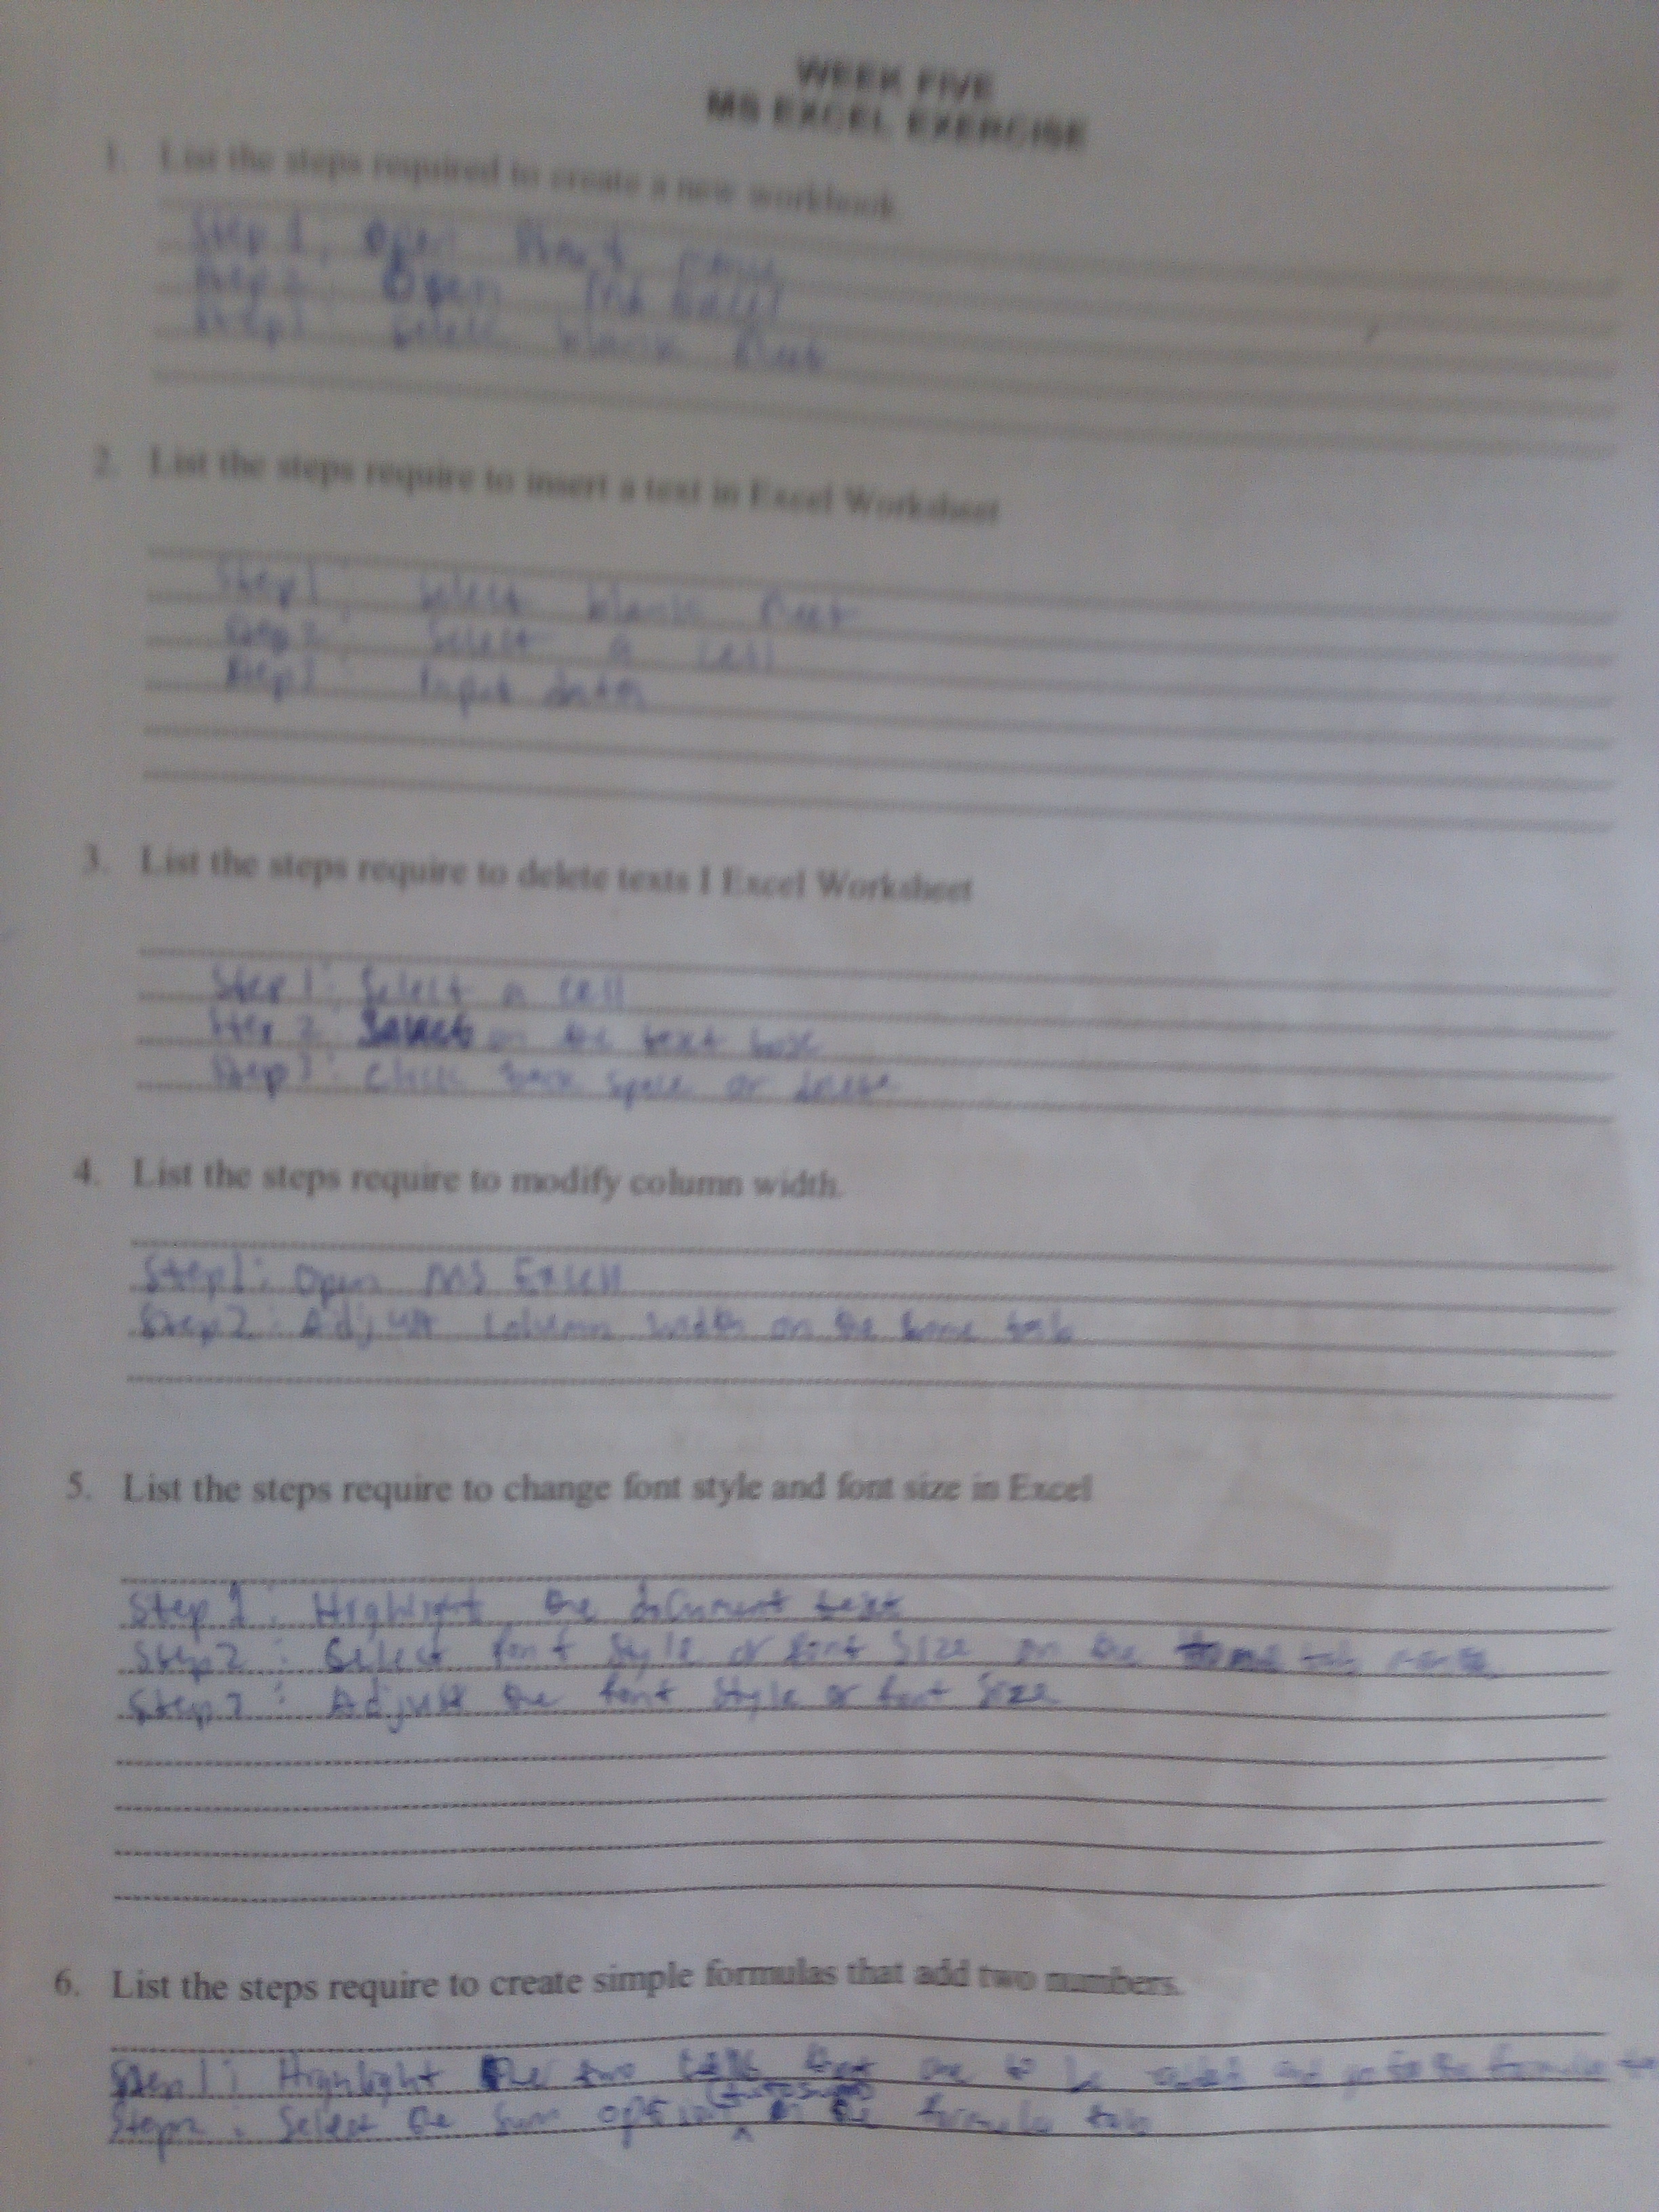 WEEK FIVE
MS EXCEL EXERCISE
1. List the steps required to create a new workbook.
Step 1: Open Start menu
Step 2: Open MS Excel
Step 3: Select blank sheet
2. List the steps require to insert a text in Excel Worksheet
Step 1: Select blank sheet
Step 2: Select a cell
Step 3: Input data
3. List the steps require to delete texts I Excel Worksheet
Step 1: Select a cell
Step 2: on the text box
Step 3: Click back space or delete
4. List the steps require to modify column width.
Step 1: Open MS Excell
Step 2: Adjust column width on the home tab
5. List the steps require to change font style and font size in Excel
Step 1: Highlight the document text
Step 2: Select font style or font size on the Home tab
Step 3: Adjust the font style or font size
6. List the steps require to create simple formulas that add two numbers.
Step 1: Highlight the two cells that are to be added and go to the formula
Step 2: Select the sum option (autosum) in the formula tab